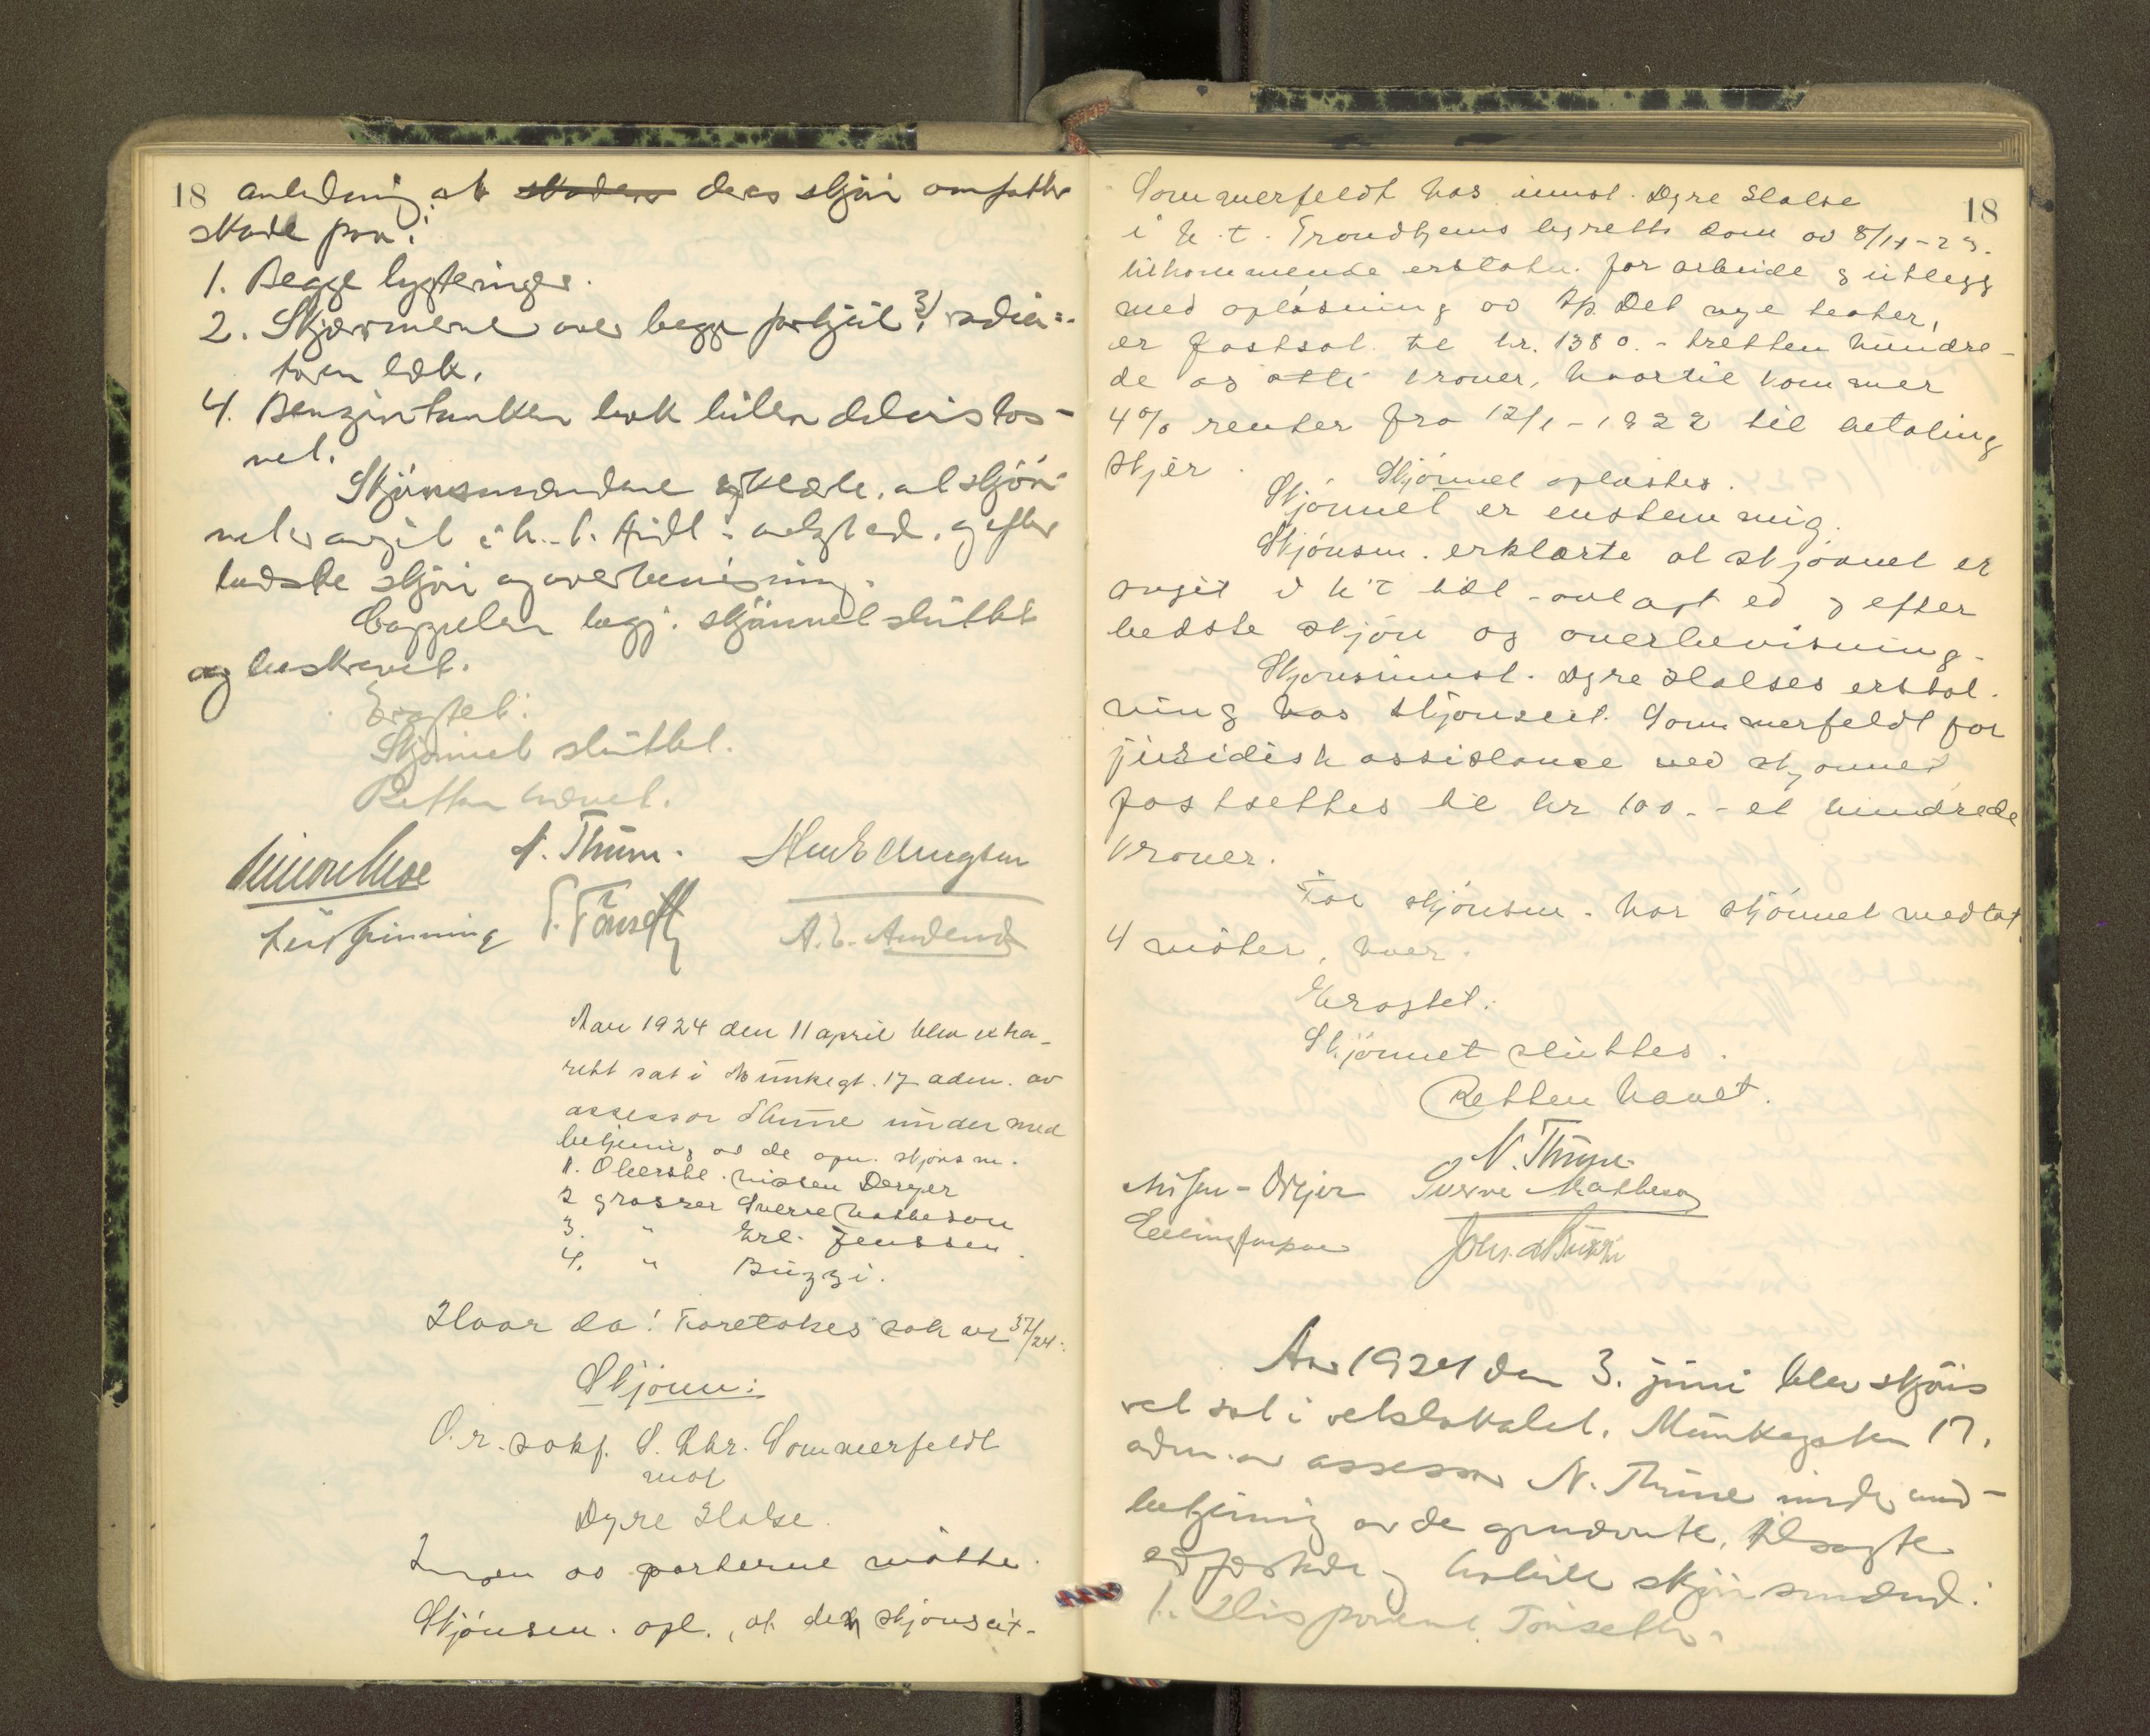 18 anledning at skaden deres skjøn omfatter
skade paa:
1. Begge lygteringer.
2. Skjærmene over begge forhjul 3/ radia=
toren læk.
4. Benzintanken læk bilen delvis løs-
net.
Skjønsmændene erklærte, at skjøn
net er avgit i h. t. tidl. avlagt ed, og efter
bedste skjøn og overbevisning.
Cappelen begj. skjønnet sluttet
og beskrevet.
Eragtet:
Skjønnet sluttet.
Retten hævet.
N. Thune.
A. E.
Aar 1924 den 11 april blev extra-
rett sat i Munkegt. 17 adm. av
assessor Thune under med
betjening av de opn. skjønsm.
1. Oberstl. Nissen Dreyer
2 grosser Sverre Matheson
3. " Erl. Jenssen.
4. " Buzzi.
Hvor da! Foretokes sak nr 37/24.
Skjønn:
O.r.sakf. S. Chr. Sommerfeldt
mot
Dyre Halse.
Ingen av parterne møtte.
Skjønsm. opl., at den skjønscit-
18
Sommerfeldt hos innst. Dyre Halse
i h. t. Trondhjems byretts dom av 8/11-23.
tilkommende erstatn. for arbeide & utlegg
med opløsning av A/s. Det nye teater,
er fastsat til kr. 1380.- tretten hundre-
de og otti kroner, hvortil kommer
4% renter fra 12/1-1922 til betaling
skjer.
Skjønnet oplæstes.
Skjønnet er enstemmig.
Skjønsm. erklærte at skjønnet er
avgit i h. t. tidl. avlagt ed & efter
bedste skjøn og overbevisning.
Skjønsinnst. Dyre Halses erstat-
ning hos skjønscit. Sommerfeldt for
juridisk assistance ved skjønnet
fastsettes til kr 100.- et hundrede
kroner.
For skjønsm. har skjønnet medtat
4 møter, hver.
Eragtet:
Skjønnet sluttes.
Retten hævet.
N. Thune.
Nissen-Dreyer Sverre Matheson
Erling Jenssen Joh. Buzzi
Aar 1924 den 3. juni blev skjøns
ret sat i retslokalet, Munkegaten 17,
adm. av assessor N. Thune under med-
betjening av de opnævnte, tilsagte
edfæstede og habile skjønsmænd:
1. Disponent Tønseth.